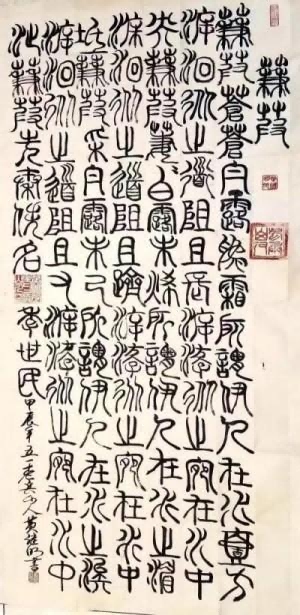 蒹葭
蒹葭蒼蒼白露為霜所謂伊人在水壹方
溯洄從之道阻且長溯游從之宛在水中
央蒹葭萋白露未晞所謂伊人在水之湄
溯洄從之道阻且躋溯游從之宛在水中
坻蒹葭采白露未已所謂伊人在水之涘
溯洄從之道阻且右溯游從之宛在水中
沚蒹葭先秦佚名
世民甲辰年五一人黃書